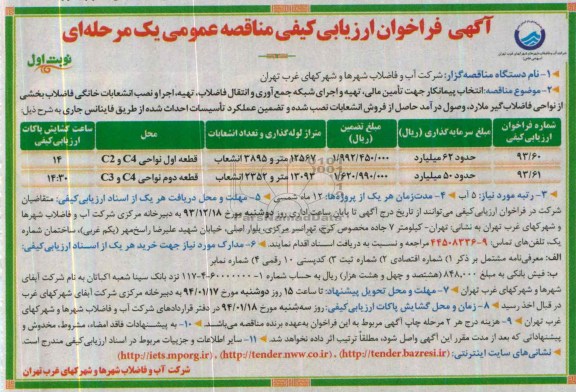 آگهی فراخوان ارزیابی کیفی مناقصه عمومی یک مرحله‌ای
نوبت اول
۱- نام دستگاه مناقصه‌گزار: شرکت آب و فاضلاب شهرها و شهرکهای غرب تهران
۲- موضوع مناقصه: انتخاب پیمانکار جهت تأمین مالی، تهیه و اجرای شبکه جمع‌آوری و انتقال فاضلاب، تهیه، اجرا و نصب انشعابات خانگی فاضلاب بخشی
از نواحی فاضلاب‌گیر ملارد، وصول درآمد حاصل از فروش انشعابات نصب شده و تضمین عملکرد تأسیسات احداث شده از طریق فاینانس جاری به شرح ذیل:
شماره فراخوان ارزیابی‌کیفی | مبلغ سرمایه‌گذاری (ریال) | مبلغ تضمین (ریال) | متراژ لوله‌گذاری و تعداد انشعابات | محل | ساعت گشایش پاکات ارزیابی‌کیفی
۹۳/۶۰ | حدود ۶۲ میلیارد | ۱/۹۹۲/۴۵۰/۰۰۰ | ۱۲۵۶۷ متر و ۳۸۹۵ انشعاب | قطعه اول نواحی C4 و C2 | ۱۴
۹۳/۶۱ | حدود ۵۰ میلیارد | ۱/۶۲۰/۹۹۰/۰۰۰ | ۱۳۰۹۳ متر و ۲۳۵۲ انشعاب | قطعه دوم نواحی C4 و C3 | ۱۴:۳۰
۳- رتبه مورد نیاز: ۵ آب ۴- مدت‌زمان هر یک از پروژه‌ها: ۱۲ ماه شمسی ۵- مهلت و محل دریافت هر یک از اسناد ارزیابی‌کیفی: متقاضیان
شرکت در فراخوان ارزیابی کیفی می‌توانند از تاریخ درج آگهی تا پایان ساعت اداری روز دوشنبه مورخ ۹۳/۱۲/۱۸ به دبیرخانه مرکزی شرکت آب و فاضلاب شهرها
و شهرکهای غرب تهران به نشانی: تهران- کیلومتر ۷ جاده مخصوص کرج، تهرانسر مرکزی، بلوار اصلی، خیابان شهید علیرضا راسخ‌مهر (یکم غربی)، ساختمان شماره
یک، تلفن‌های تماس: ۹-۴۴۵۰۸۳۳۶ مراجعه و نسبت به دریافت اسناد اقدام نمایند. ۶- مدارک مورد نیاز جهت خرید هر یک از اسناد ارزیابی‌کیفی:
الف: معرفی‌نامه مشتمل بر ذکر ۱) شماره اقتصادی ۲) شماره ثبت ۳) کدپستی ۱۰ رقمی ۴) شماره نمابر
ب: فیش بانکی به مبلغ ۸۴۸/۰۰۰ (هشتصد و چهل و هشت هزار) ریال به حساب شماره ۱-۶۰۰۰۰۰۰-۴-۱۱۷ نزد بانک سینا شعبه اکباتان به نام شرکت آبفای
شهرها و شهرکهای غرب تهران ۷- مهلت و محل تحویل پیشنهاد: تا ساعت ۱۵ روز دوشنبه مورخ ۹۴/۰۱/۱۷ به دبیرخانه مرکزی شرکت آبفای شهرکهای غرب تهران
در قبال اخذ رسید ۸- زمان و محل گشایش پاکات ارزیابی‌کیفی: روز سه‌شنبه مورخ ۹۴/۰۱/۱۸ در دفتر قراردادهای شرکت آب و فاضلاب شهرها و شهرکهای
غرب تهران ۹- هزینه درج هر ۲ مرحله چاپ آگهی مربوط به این فراخوان به‌عهده برنده مناقصه می‌باشد. ۱۰- به پیشنهادات فاقد امضاء، مشروط، مخدوش و
پیشنهاداتی که بعد از مدت مقرر این آگهی واصل شود، مطلقاً ترتیب اثر داده نخواهد شد. ۱۱- سایر اطلاعات و جزییات مربوط در اسناد ارزیابی کیفی مندرج است.
نشانی‌های سایت اینترنتی: (http://tender.bazresi.ir)، (http://tender.mww.co.ir)، (http://iets.mporg.ir)
شرکت آب و فاضلاب شهرها و شهرکهای غرب تهران